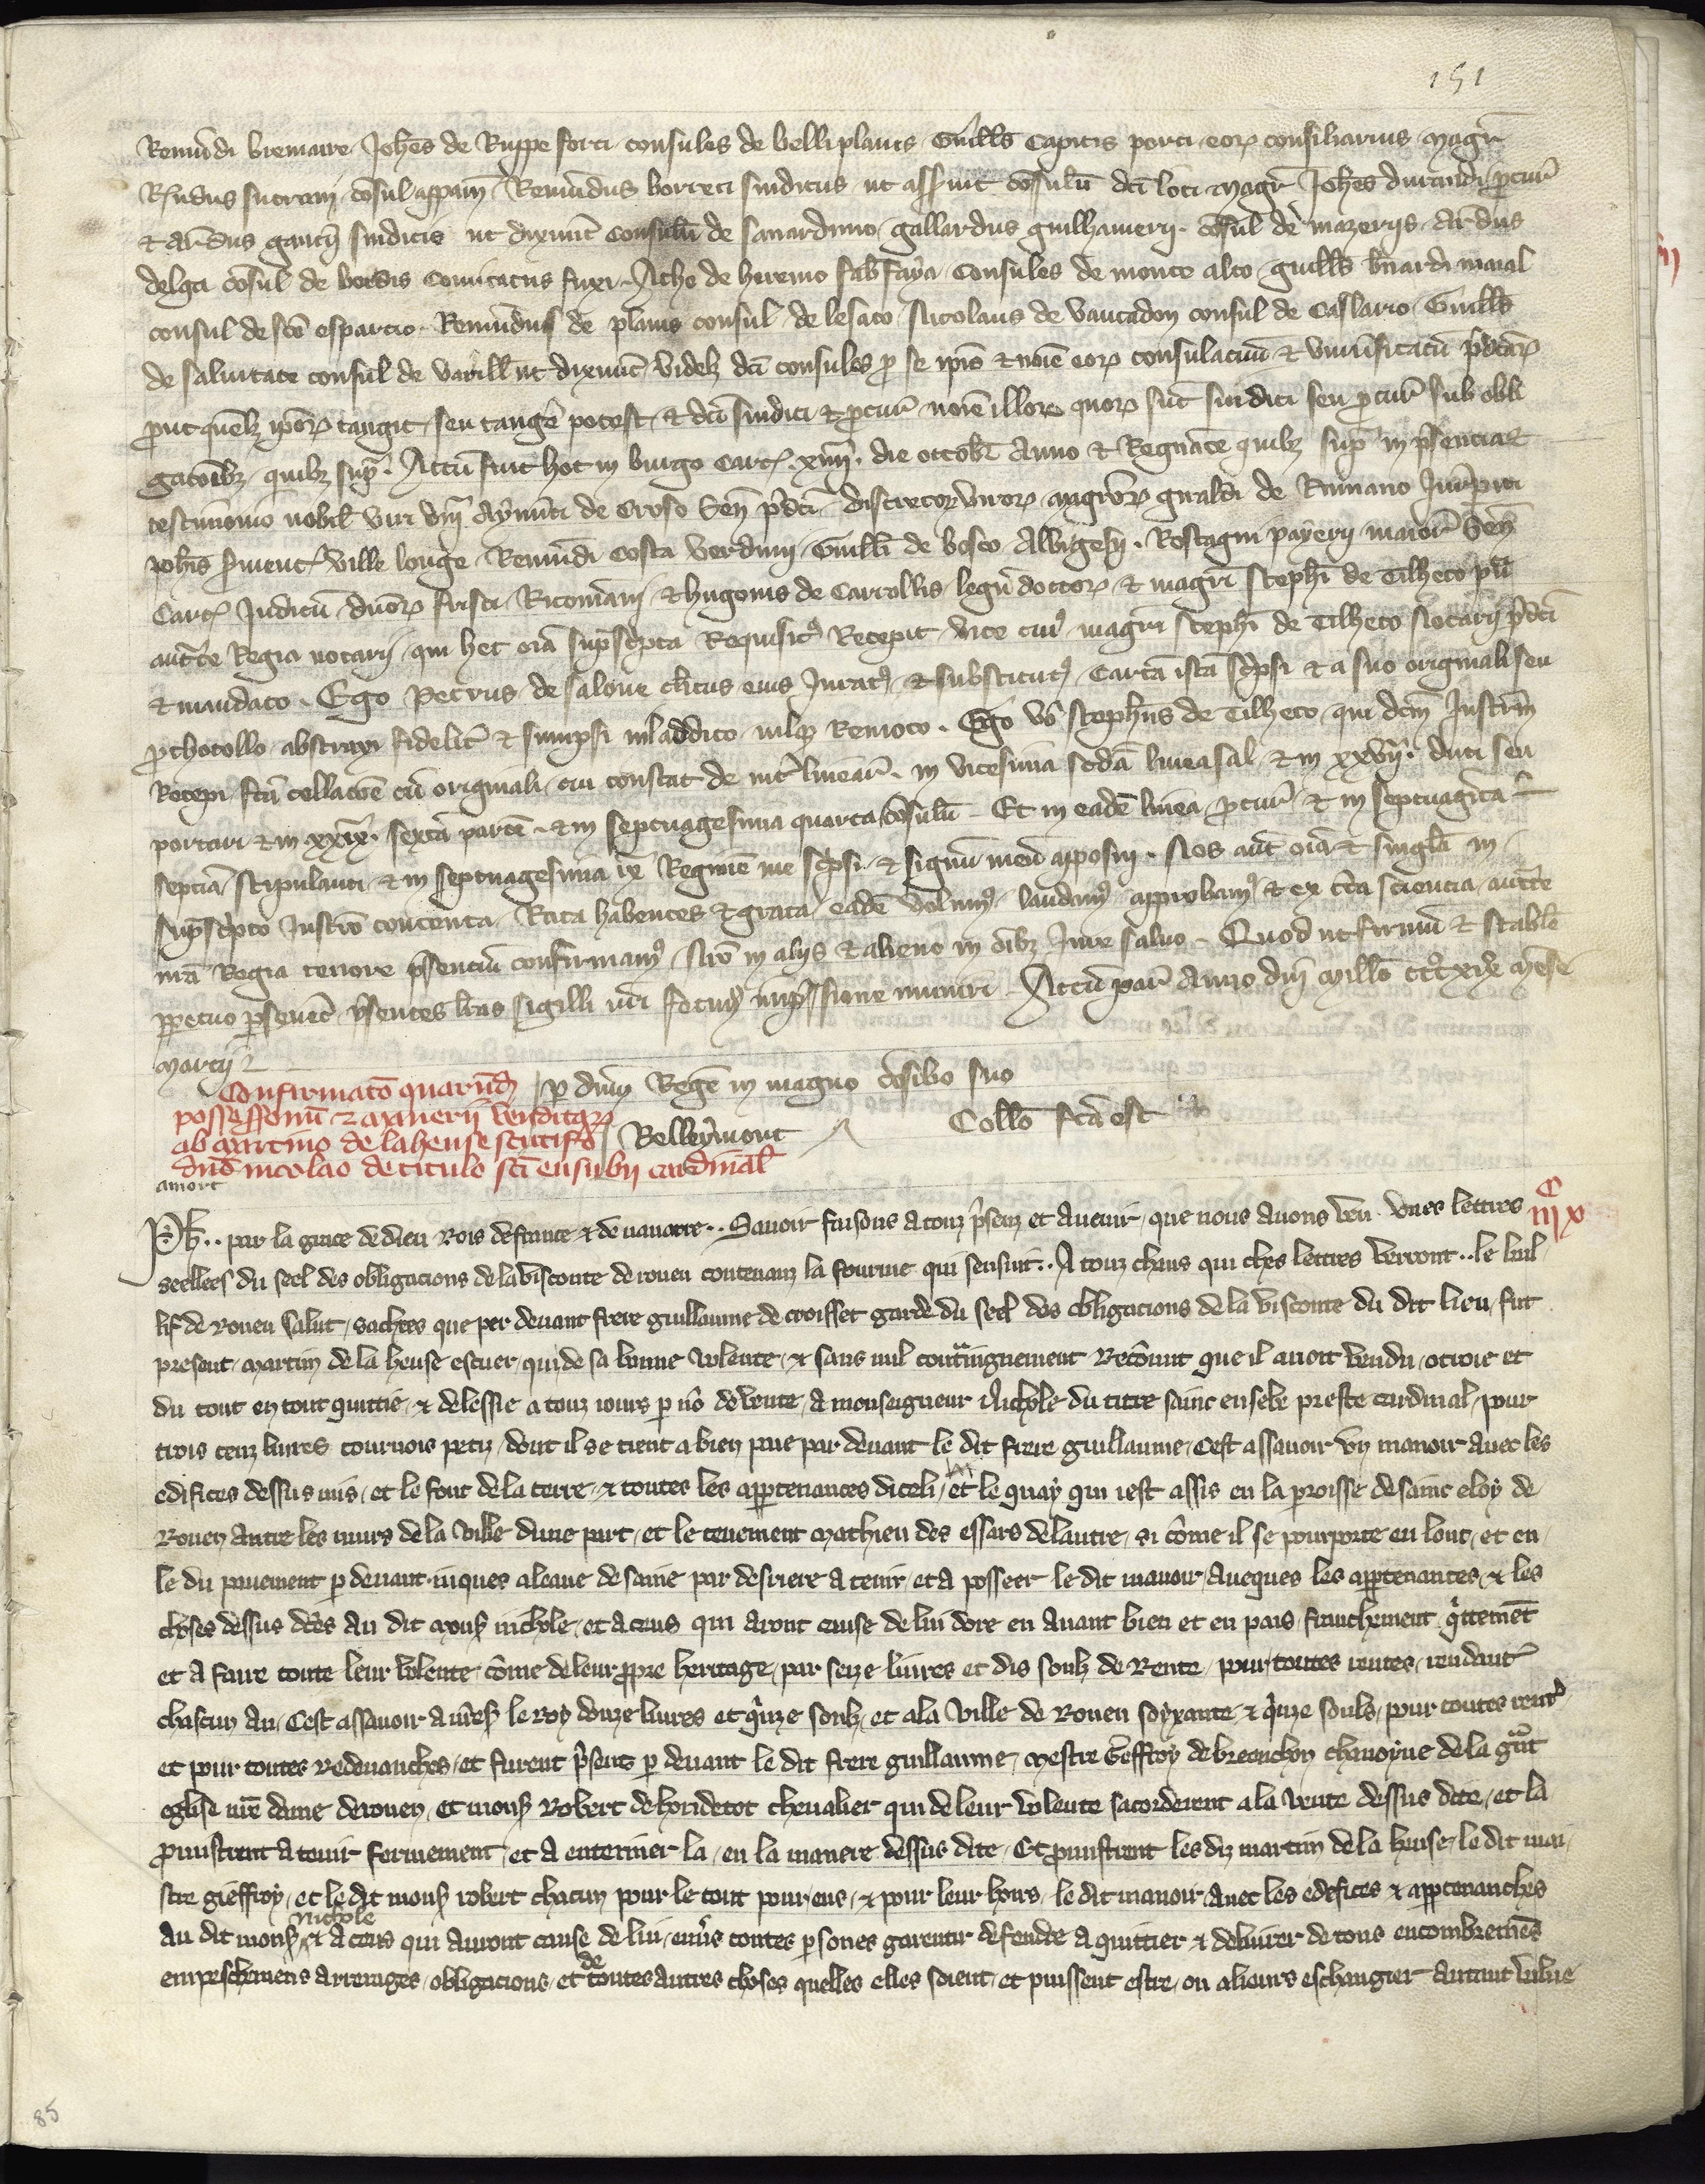 151
Remundi bremaire Johes de Ruppe forti consules de belliplanis Guills Capitis porci eor consiliarius magr
Rundus sutorani cosul appam Remundus borreti sindicus ut asseruit cosulu dci loci magr Johes durandi pcur
& Arndus gaucii sindicis ut dixerunt consulu de sauarduno gallardus guilhamerii cosul de mazeriis Arndus
delga cosul de bordis comitatus fuxi Atho de heremo fab faya consules de monte alto guills bnardi maial
consul de sco esparcio Remundus de planis consul de lesato Nicolaus de vautadon consul de Caslario Guills
de saluitate consul de varill ut dixerunt videlz dci consules p se ipis & noie eor consulatuu & vniuersitatu pdcar
put quelz ipor tangit seu tange potest & dci sindici & pcur noie illor quor sut sindici seu pcur sub obli
gacoibz quibz sup. Actu fuit hoc in burgo Carc. xiiii. die octobr Anno & Regnate quibz sup in psencia &
testimonio nobil viri dni Aymirici de Croso Sen pdci discretor viror magror guraldi de Rumano Jurispiti
Johis pment ville longe Remundi Costa verduni Guilli de bosco Albigesii. Rostagni payerii maior Sen
Carc Judicu duor frisci Ricomanii & hugonis de Carrollis legu doctor & magri stephi de Tilheto pu
auctte Regia notarii qui hec oia supscpta Requisit Recepit vice cui magri stephi de Tilheto Notarii pdci
& mandato. Ego Petrus de salone clicus eius Jurat & substitut carta ista scpsi & a suo originali seu
pthocollo abstraxi fidelit & sumpsi nil addito nilq Remoto. Ego vo stephs de Tilheto qui dcm Instrm
Recepi fca collacoe cu originali cui constat de int linear. in vicesima scda linea sal & in xxvii. duci seu
portari & in xxix. sexta parte & in septuagesima quarta cosulu Et in eade linea pcur & in septuagita
septia stipulanti & in septuagesima ix Regimie me scpsi & signu meu apposui. Nos aut oia & singla in
supscpto Instro contenta Rata habentes & grata eade volum laudam approbam & ex cta sciencia auctte
nra Regia tenore psentiu confirmam Nro in aliis & alieno in oibz Jure saluo Quod ut firmu & stabile
ppetuo pseueret psentes lras sigilli nri fecim impssione muniri Actu par Anno dni millo ccc xix mense
marcii
Confirmato quarud
possessionu & manerii venditar
ab martino de la heuse scutifo
dno nicolao de titulo sci eusebii cardinal
p dnm Rege in magno cosilio suo
Belleymont
Collo fca est
amort
Ph.. par la grace de dieu Rois de france & de nauarre.. Sauoir faisons a touz psenz et auenir que nous auons veu vnes lettres
C
iii x
seellees du seel des obligacions de la visconte de rouen contenanz la fourme qui sensuit.. A touz cheus qui ches lettres verront.. le bail
lif de Rouen Salut sachies que per deuant frere guillaume de croisset garde du seel des obligacions de la visconte du dit lieu fut
present martin de la heuse escuer qui de sa bonne volente & sans nul contraingnement Reconnut que il auoit vendu otroie et
du tout en tout quittie & delessie a touz iours p no de vente a monseigneur Nichole du titre saint eusebe prestre cardinal pour
trois cenz liures tournois petiz dont il se tient a bien paie par deuant le dit frere guillaume Cest assauoir vn manoir auec les
edifices dessus mis et le font de la terre & toutes les appartenances diceli et le quay qui iest assis en la paroisse de saint eloy de
Rouen antre les murs de la ville dune part et le tenement mathieu des essars de lautre si come il se pourporte en lonc et en
le du pauement p deuant iuques a leaue de saine par desriere a tenir et a posseer le dit manoir aueques les appartenances & les
choses dessus dces au dit mons nichole et a ceus qui aront cause de lui dore en auant bien et en pais franchement qittement
et a faire toute leur volente come de leur propre heritage par seize liures et dis soulz de Rente pour toutes rentes rendant
chascun an Cest assauoir a nres le Roy douze liures et qinze soulz et a la ville de Rouen soyxante & qinze soulz pour toutes rentes
et pour toutes Redeuanches et furent psens p deuant le dit frere guillaume mestre Geffroy de breanchon chanoyne de la grat
eglise nre dame de rouen et mons Robert de houdetot cheualier qui de leur volente sacorderent a la vente dessus dite et la
pmistrent a tenir fermement et a enteriner la en la maniere dessus dite Et pmistrent les diz martin de la heuse le dit mai
stre gieffroy et le dit mons robert chacun pour le tout pour eus & pour leur hoirs le dit manoir auec les edefices & appartenanches
au dit mons nichole & a ceus qui auront cause de lui enuers toutes psones garentir defendre aquittier & deliurer de tous encombremens
empeschemens arrerages obligacions et de toutes autres choses quelles elles soient et puissent estre ou alieurs eschangier autant value
85